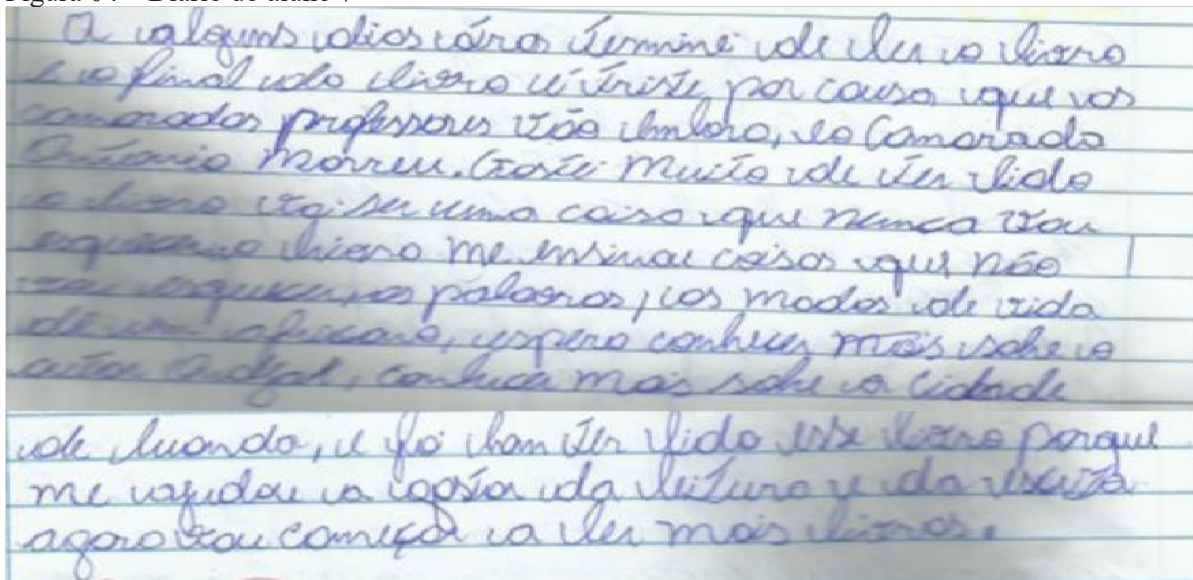 A alguns dias atras termine de ler o livro
e o final do livro é triste por causa que os
camaradas professores vão embora, e o Camarada
Antonio morreu. Gostei muito de ter lido
o livro vai ser uma coisa que nunca vou
esquecer o livro me ensinou coisas que não
vou esquecer, as palavras, os modos de vida
de um africano, espero conhecer mais sobre o
autor Ondjak, conhecer mais sobre a cidade
de luanda, e foi bom ter lido esse livro porque
me ajudou a gosta da leitura e da escrita
agora vou começar a ler mais livros.